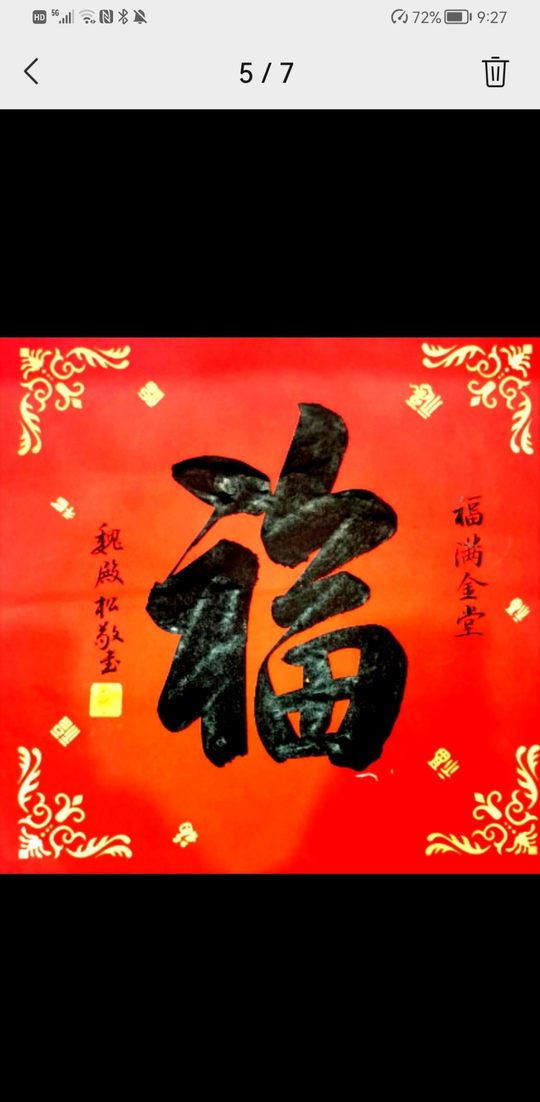 HD 5G 72% 9:27
5 / 7
福
福满金堂
魏殿松敬书